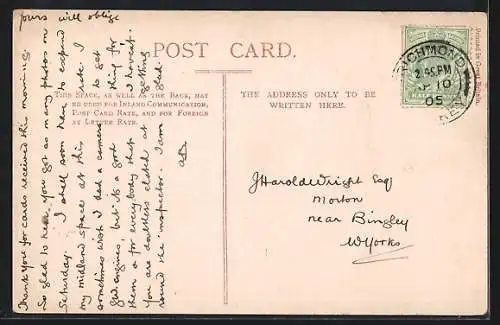 yours will oblige
POST CARD.
THIS SPACE, AS WELL AS THE BACK, MAY
BE USED FOR INLAND COMMUNICATION,
POST CARD RATE, AND FOR FOREIGN
AT LETTER RATE.
THE ADDRESS ONLY TO BE
WRITTEN HERE.
Printed in Great Britain.
RICHMOND
2.45PM
10
05
J Harold Wright Esq
Morton
near Bingley
W Yorks
Thank you for cards received this morning.
So glad to hear you got so many photos on
Saturday. I shall soon have to expand
my midland space at this rate. I
sometimes wish I had a camera to get
engines, but it's a good thing for
them & for every body that I haven't.
You are doubtless elated at getting
round the inspector. I am glad